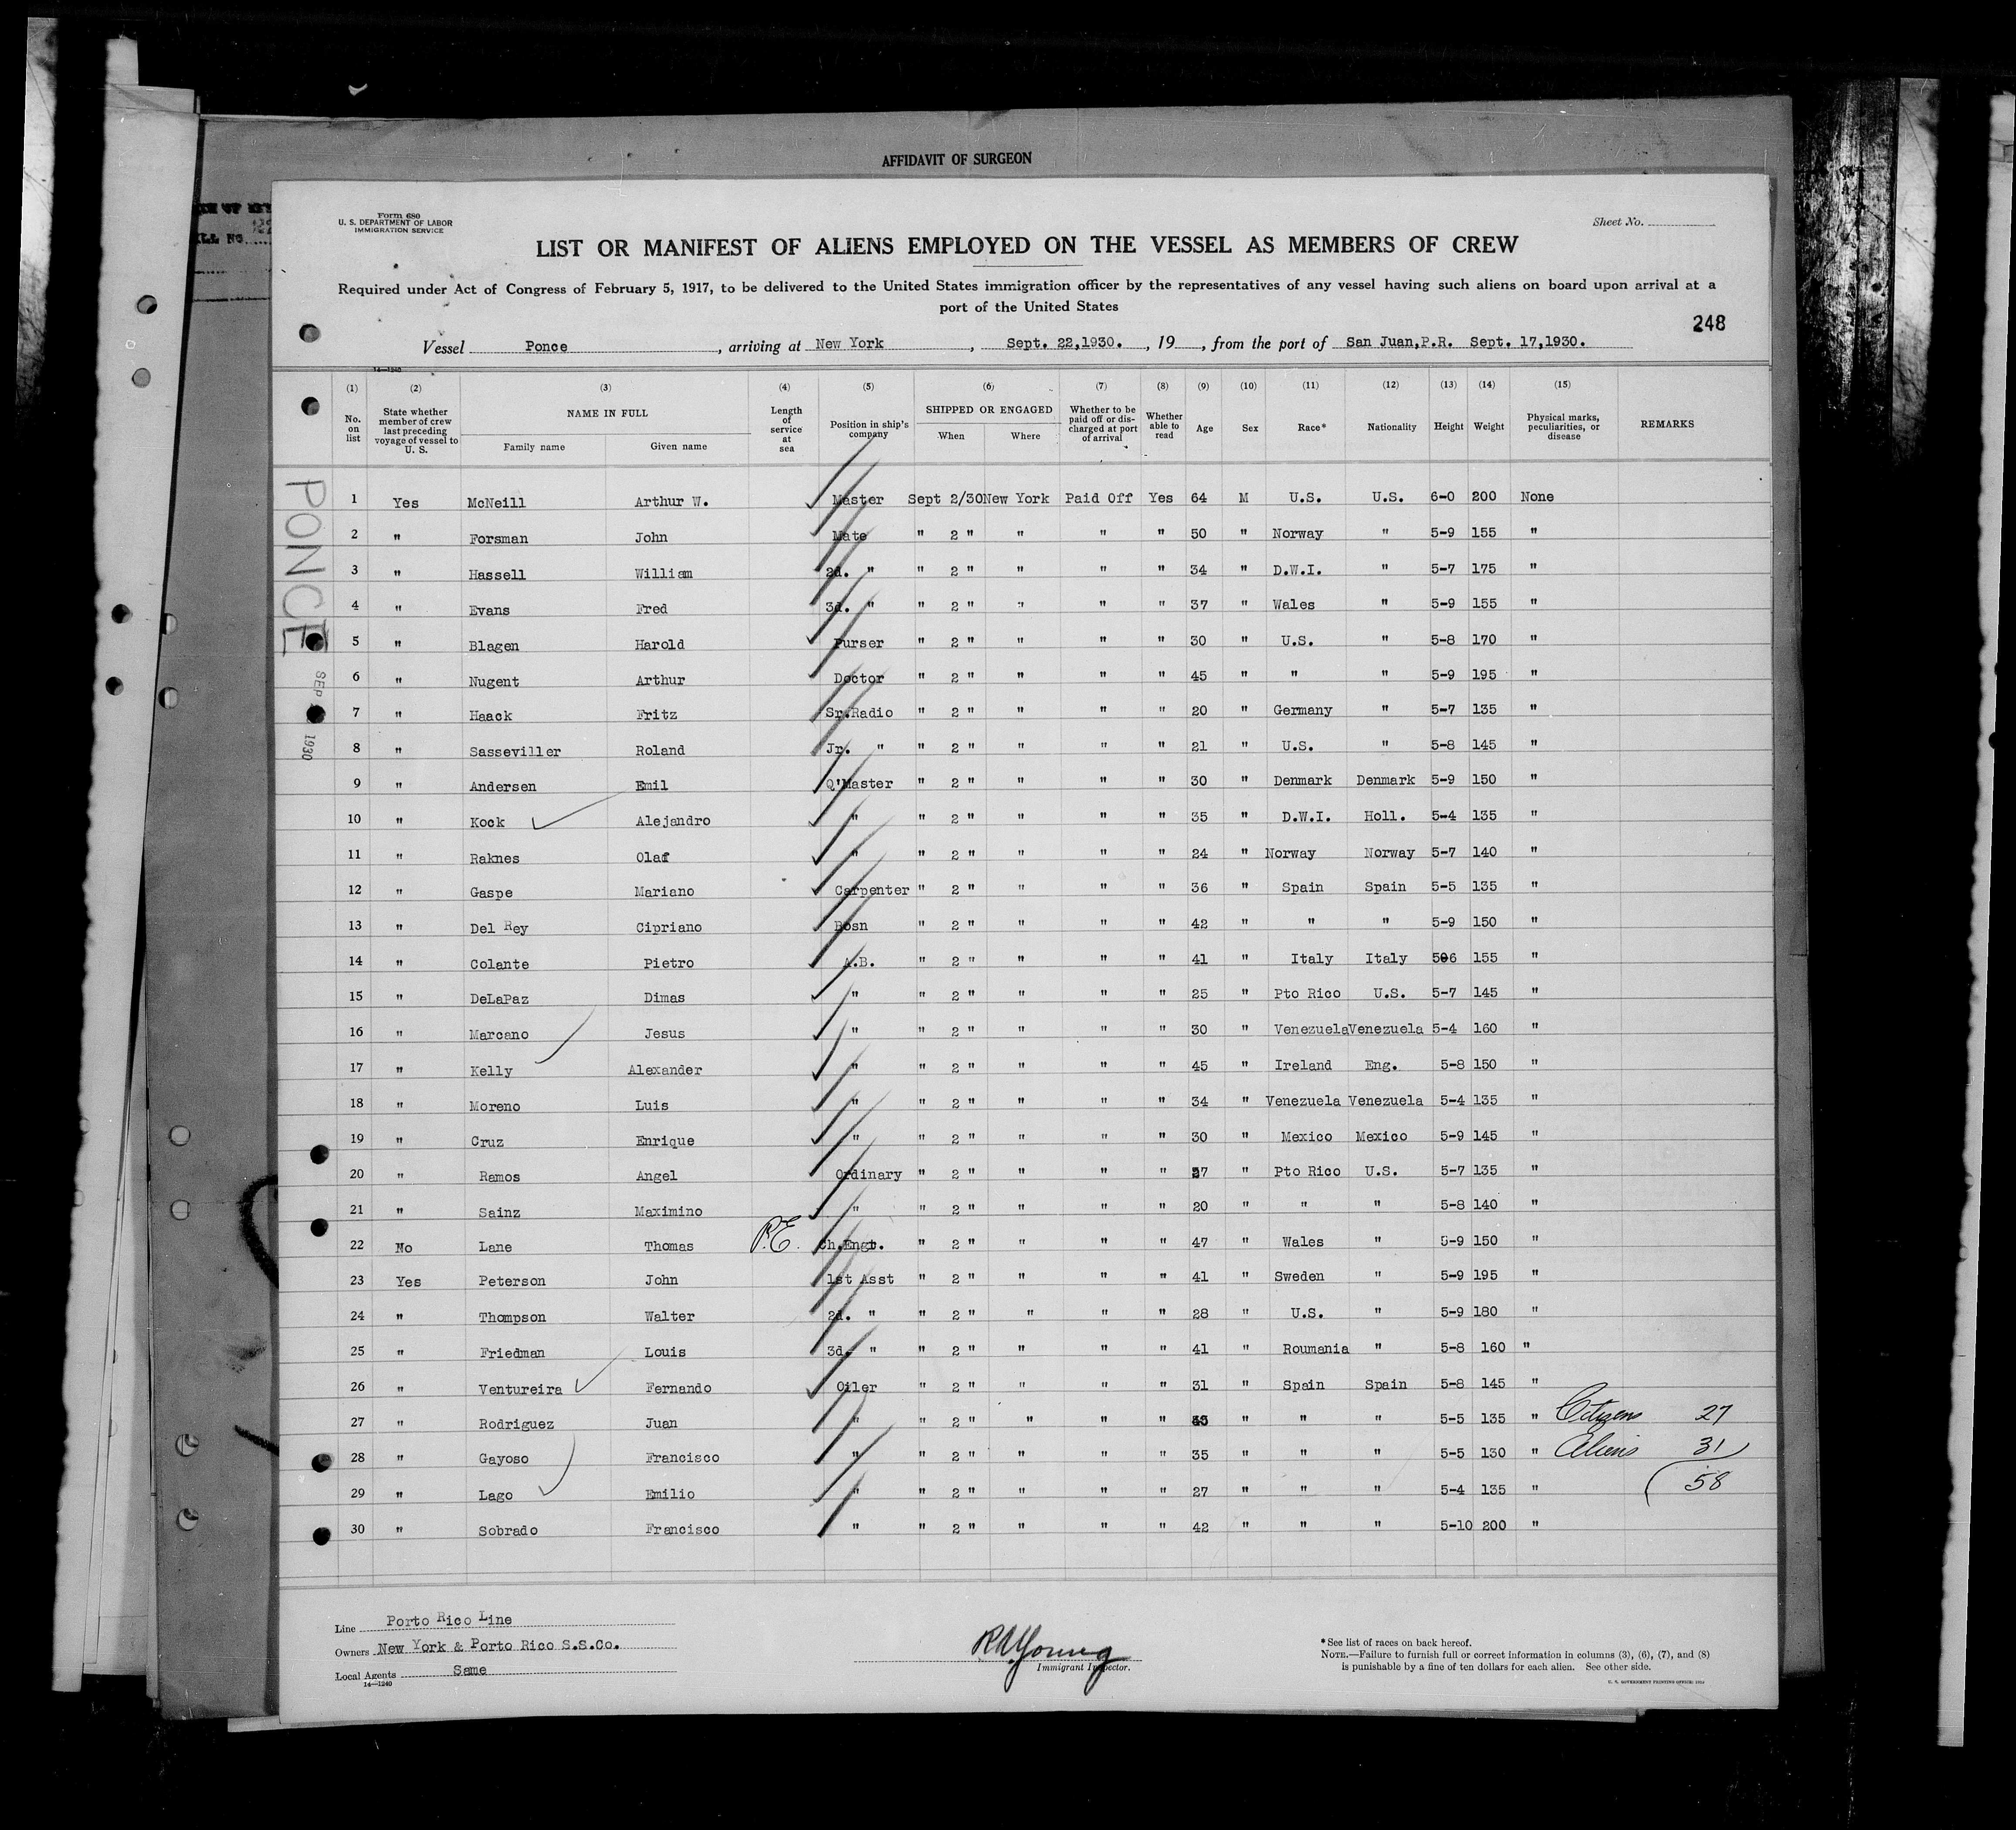 AFFIDAVIT OF SURGEON
Form 680
U. S. DEPARTMENT OF LABOR
IMMIGRATION SERVICE
Sheet No.
LIST OR MANIFEST OF ALIENS EMPLOYED ON THE VESSEL AS MEMBERS OF CREW
Required under Act of Congress of February 5, 1917, to be delivered to the United States immigration officer by the representatives of any vessel having such aliens on board upon arrival at a
port of the United States
248
Vessel Ponce, arriving at New York, Sept. 22,1930., 19, from the port of San Juan,P.R. Sept. 17,1930.
14—1240
(1) (2) (3) (4) (5) (6) (7) (8) (9) (10) (11) (12) (13) (14) (15)
No. on list State whether member of crew last preceding voyage of vessel to U. S. NAME IN FULL Family name Given name Length of service at sea Position in ship's company SHIPPED OR ENGAGED When Where Whether to be paid off or discharged at port of arrival Whether able to read Age Sex Race* Nationality Height Weight Physical marks, peculiarities, or disease REMARKS
PONCE
SEP 1930
1 Yes McNeill Arthur W. Master Sept 2/30 New York Paid Off Yes 64 M U.S. U.S. 6-0 200 None
2 " Forsman John Mate " 2 " " " " 50 " Norway " 5-9 155 "
3 " Hassell William 2d. " " 2 " " " " 34 " D.W.I. " 5-7 175 "
4 " Evans Fred 3d. " " 2 " " " " 37 " Wales " 5-9 155 "
5 " Blagen Harold Purser " 2 " " " " 30 " U.S. " 5-8 170 "
6 " Nugent Arthur Doctor " 2 " " " " 45 " " " 5-9 195 "
7 " Haack Fritz Sr.Radio " 2 " " " " 20 " Germany " 5-7 135 "
8 " Sasseviller Roland Jr. " " 2 " " " " 21 " U.S. " 5-8 145 "
9 " Andersen Emil Q'Master " 2 " " " " 30 " Denmark Denmark 5-9 150 "
10 " Kock Alejandro " " 2 " " " " 35 " D.W.I. Holl. 5-4 135 "
11 " Raknes Olaf " " 2 " " " " 24 " Norway Norway 5-7 140 "
12 " Gaspe Mariano Carpenter " 2 " " " " 36 " Spain Spain 5-5 135 "
13 " Del Rey Cipriano Bosn " 2 " " " " 42 " " " 5-9 150 "
14 " Colante Pietro A.B. " 2 " " " " 41 " Italy Italy 5-6 155 "
15 " DeLaPaz Dimas " " 2 " " " " 25 " Pto Rico U.S. 5-7 145 "
16 " Marcano Jesus " " 2 " " " " 30 " Venezuela Venezuela 5-4 160 "
17 " Kelly Alexander " " 2 " " " " 45 " Ireland Eng. 5-8 150 "
18 " Moreno Luis " " 2 " " " " 34 " Venezuela Venezuela 5-4 135 "
19 " Cruz Enrique " " 2 " " " " 30 " Mexico Mexico 5-9 145 "
20 " Ramos Angel Ordinary " 2 " " " " 27 " Pto Rico U.S. 5-7 135 "
21 " Sainz Maximino " " 2 " " " " 20 " " " 5-8 140 "
22 No Lane Thomas P.E. Ch.Engr. " 2 " " " " 47 " Wales " 5-9 150 "
23 Yes Peterson John 1st Asst " 2 " " " " 41 " Sweden " 5-9 195 "
24 " Thompson Walter 2d. " " 2 " " " " 28 " U.S. " 5-9 180 "
25 " Friedman Louis 3d. " " 2 " " " " 41 " Roumania " 5-8 160 "
26 " Ventureira Fernando Oiler " 2 " " " " 31 " Spain Spain 5-8 145 "
27 " Rodriguez Juan " " 2 " " " " " " " 5-5 135 " Citizens 27
28 " Gayoso Francisco " " 2 " " " " 35 " " " 5-5 130 " Aliens 31
29 " Lago Emilio " " 2 " " " " 27 " " " 5-4 135 " 58
30 " Sobrado Francisco " " 2 " " " " 42 " " " 5-10 200 "
Line Porto Rico Line
Owners New York & Porto Rico S.S.Co.
Local Agents Same
14—1240
R A Young
Immigrant Inspector.
*See list of races on back hereof.
NOTE.—Failure to furnish full or correct information in columns (3), (6), (7), and (8)
is punishable by a fine of ten dollars for each alien. See other side.